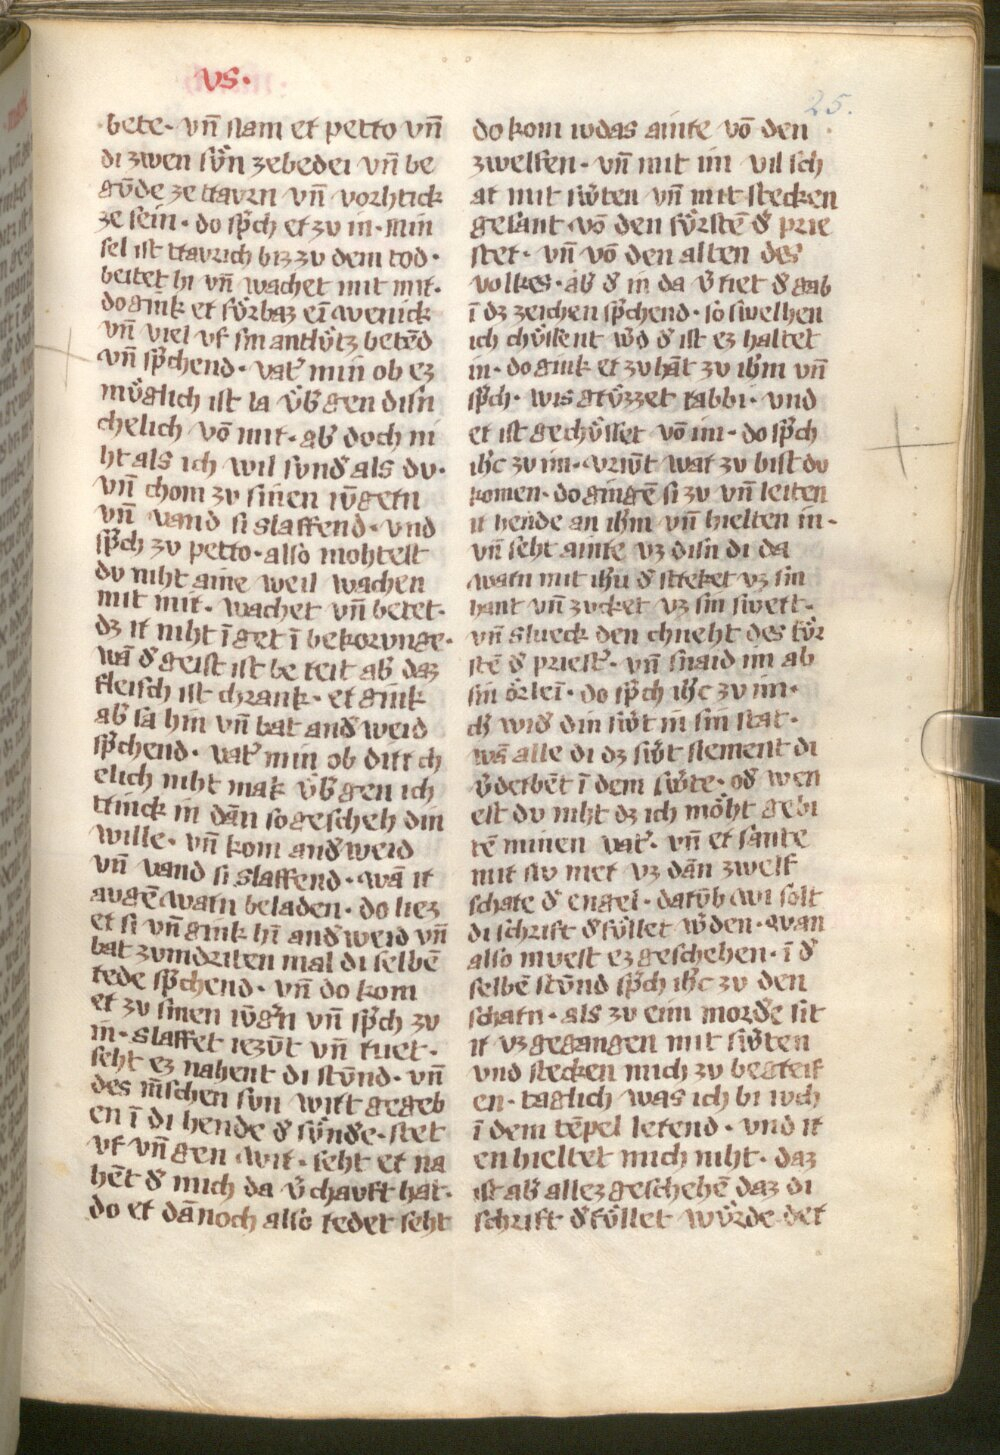 vs·
25.
bete· vn̄ nam er petro vn̄
di zwen svͤn zebedei vn̄ be
gvͦde ze travrn vn̄ vorhtick
ze sein· do sp̄ch er zv in· Min
sel ist travrich biz zv dem tod·
beitet hi vn̄ wachet mit mir·
do gink er fvͤrbaz eī wenick
vn̄ viel vf sin antlvͤtz betēd
vn̄ sp̄chend· vat͛ min ob ez
mvͤglich ist la vͤb͛gen disn
chelich vō mir· ab͛ doch ni
ht als ich wil svnd͛ als dv·
vn̄ chom zv sinen ivͦgern
vn̄ vand si slaffend· vnd
sp̄ch zv petro· also mohtest
dv niht aine weil wachen
mit mir· wachet vn̄ betet·
dz ir niht īget ī bekorvnge·
wā d͛ geist ist be reit ab͛ daz
fleisch ist chrank· er gink
ab͛ sa hin vn̄ bat and͛weid
sp̄chend· vat͛ min ob dirr ch
elich niht mak vͤb͛gen ich
trinck in dān so gescheh din
wille· vn̄ kom and͛weid
vn̄ vand si slaffend· wā ir
avgē warn beladen· do liez
er si vn̄ gink hī and͛weid vn̄
bat zvmdriten mal di selbē
rede sp̄chend· vn̄ do kom
er zv sinen ivͦg͛n vn̄ sp̄ch zv
in· slaffet iezvͦt vn̄ rvet·
seht ez nahent di stvͦnd· vn̄
des m̄schen svn wirt gegeb
en ī di hende d͛ svͤnd͛e· stet
vf vn̄ gen wir· seht er na
hēt d͛ mich da v͛chavft hat·
do er dānoch also redet seht
do kom ivdas ainre vō den
zwelfen· vn̄ mit im vil sch
ar mit swͤrten vn̄ mit stecken
gesant vō den fvͤrstē d͛ prie
ster· vn̄ vō den alten des
volkes· ab͛ d͛ in da v͛riet d͛ gab
ī dz zeichen sp̄chend· so swelhen
ich chvͤssent wͤd d͛ ist ez haltet
in· do gink er zvhāt zv ih̄m vn̄
sp̄ch· wis grvͤzzet rabbi· vnd
er ist gechvͤsset vō im· do sp̄ch
ih̄c zv im· vrivͦt war zv bist dv
komen· do gingē si zv vn̄ leiten
ir hende an ih̄m vn̄ hielten in·
vn̄ seht ainre vz disn di da
warn mit ih̄u d͛ streket vz sin
hant vn̄ zvcket vz sin swert·
vn̄ slueck den chneht des fvͤr
stē d͛ priest͛· vn̄ snaid im ab
sin oͤrleī· do sp̄ch ih̄c zv im·
ch͛ wid͛ din swͤt in sin stat·
wā alle di dz swͤt nement di
v͛derbēt ī dem swͤte· od͛ wen
est dv niht dz ich moͤht gebi
tē minen vat͛· vn̄ er sante
mir nv mer vz dān zwelf
schare d͛ engel· darvͦb wi solt
di schrift d͛fvͤllet wͤden· wan
also mvest ez geschehen· ī d͛
selbē stvͦnd sp̄ch ih̄c zv den
scharn· als zv eim mord͛e sit
ir vz gegangen mit swͤten
vnd stecken mich zv begreif
en· taglich was ich bi ivch
ī dem tēpel lerend· vnd ir
enhieltet mich niht· daz
ist ab͛ allez geschehē daz di
schrift d͛fvͤllet wvͤrde der